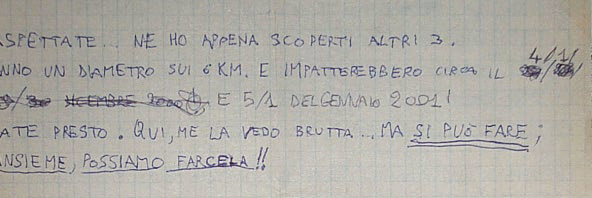 SPETTATE... NE HO APPENA SCOPERTI ALTRI 3.
NNO UN DIAMETRO SUI 6 KM. E IMPATTEREBBERO CIRCA IL 4/1/
DICEMBRE 2000 E 5/1 DEL GENNAIO 2001!
ATE PRESTO. QUI, ME LA VEDO BRUTTA... MA SI PUÒ FARE;
NSIEME, POSSIAMO FARCELA!!